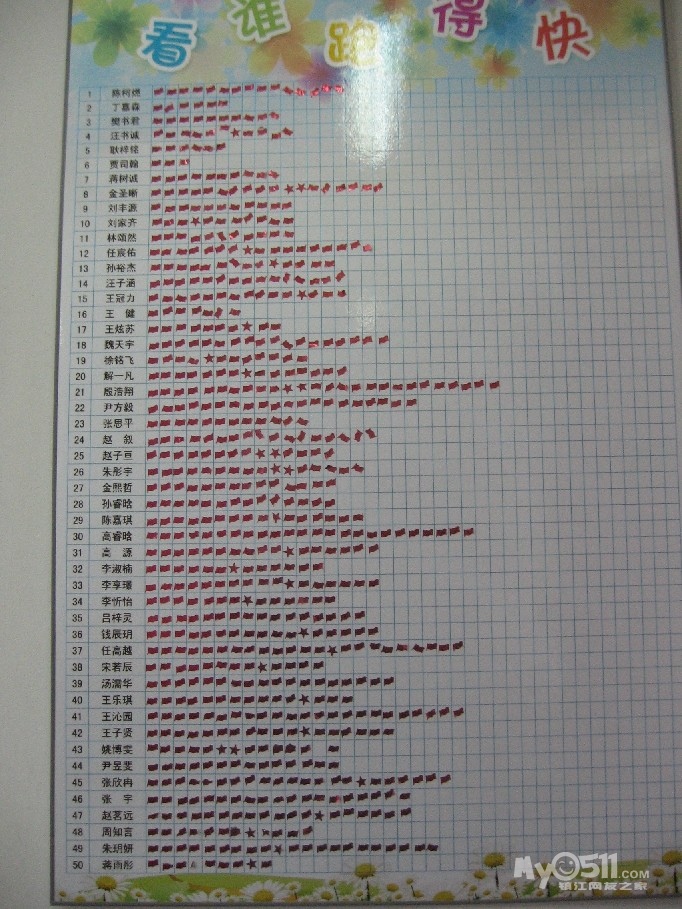 看谁跑得快
1 陈柯燃
2 丁嘉森
3 樊书君
4 汪书诚
5 耿梓铭
6 贾司翰
7 蒋树诚
8 金圣晰
9 刘丰源
10 刘家齐
11 林颂然
12 任宸佑
13 孙裕杰
14 汪子涵
15 王冠力
16 王 健
17 王炫苏
18 魏天宇
19 徐铭飞
20 解一凡
21 殷浩翔
22 尹方毅
23 张思平
24 赵 叙
25 赵子亘
26 朱彤宇
27 金熙哲
28 孙睿晗
29 陈嘉琪
30 高睿晗
31 高 源
32 李淑楠
33 李享璥
34 李忻怡
35 吕梓灵
36 钱辰玥
37 任高越
38 宋若辰
39 汤濡华
40 王乐琪
41 王沁园
42 王子贤
43 姚博雯
44 尹昱斐
45 张欣冉
46 张 宇
47 赵茗远
48 周知言
49 朱玥妍
50 蒋雨彤
My0511.com
镇江网友之家